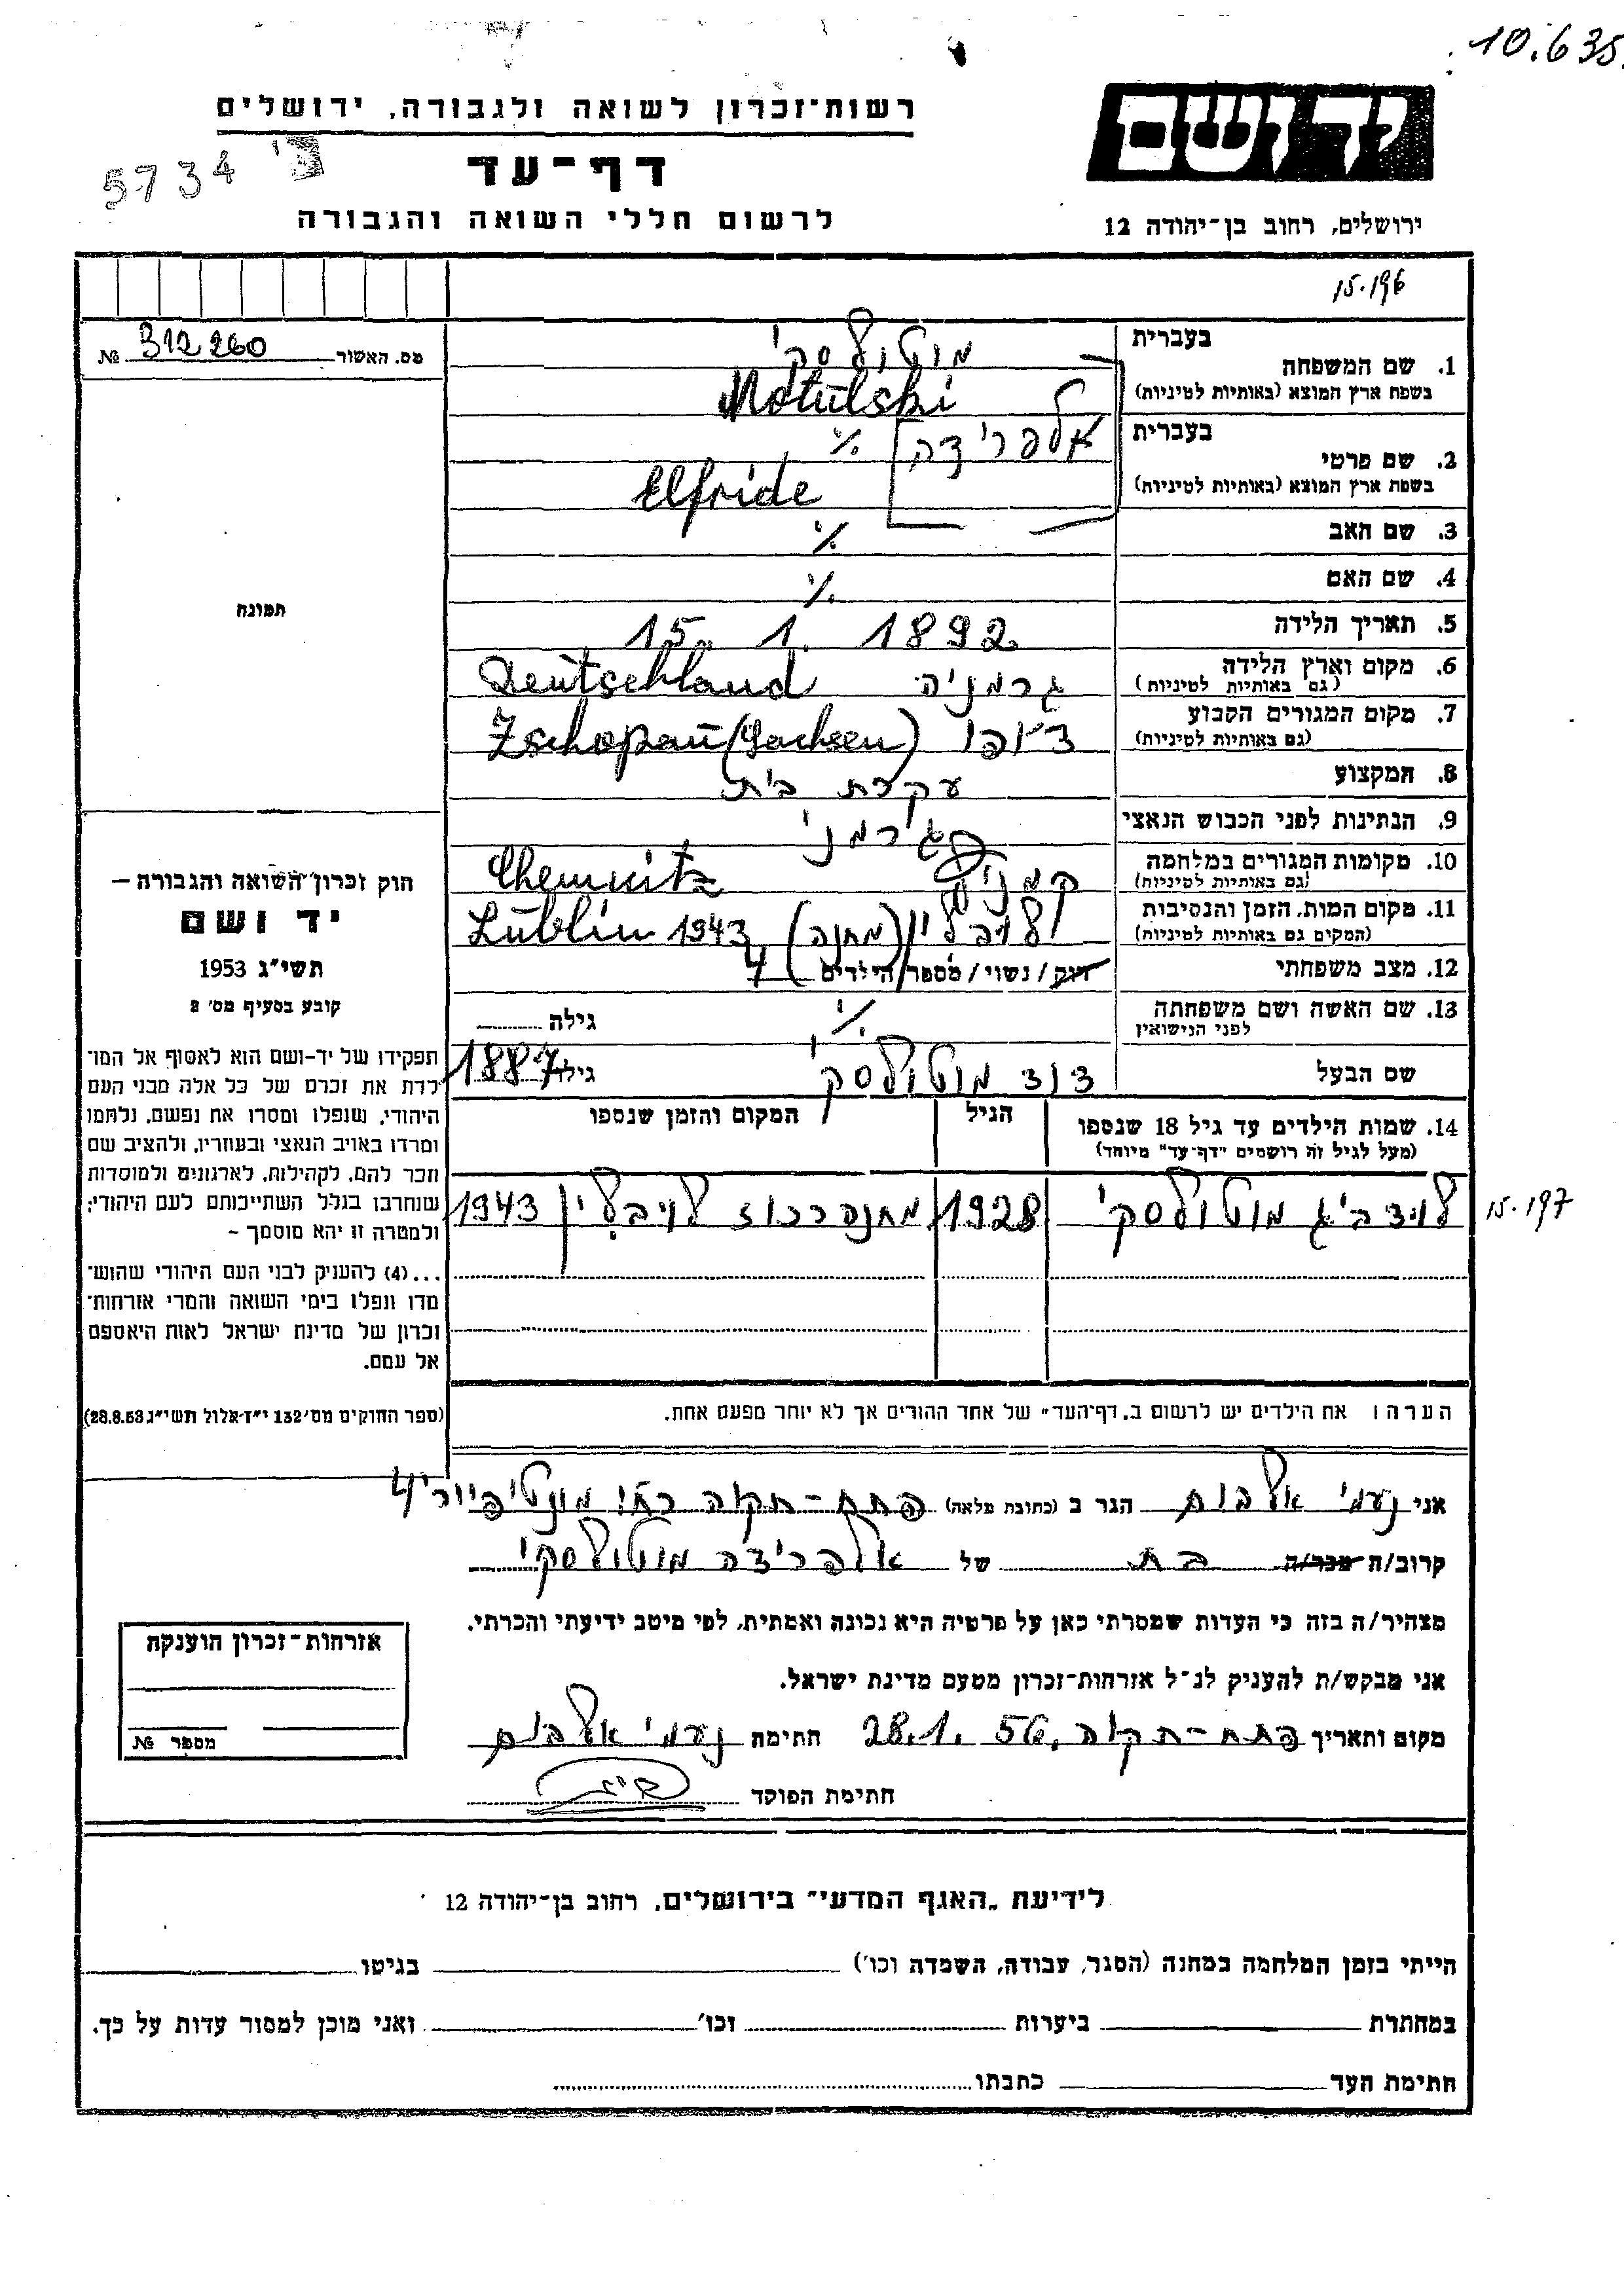 10.635
רשות־זכרון לשואה ולגבורה, ירושלים
יד ושם
5734
דף־עד
לרשום חללי השואה והגבורה
ירושלים, רחוב בן־יהודה 12
15.196
מס. האשור 312260 №
בעברית מוטולסקי
1. שם המשפחה
בשפת ארץ המוצא (באותיות לטיניות) Motulski
בעברית אלפרידה ٪
2. שם פרטי
בשפת ארץ המוצא (באותיות לטיניות) Elfride
3. שם האב ٪
4. שם האם ٪
תמונה
5. תאריך הלידה 15. 1. 1892
6. מקום וארץ הלידה גרמניה Deutschland
(גם באותיות לטיניות)
7. מקום המגורים הקבוע צ'ופו Zschopau (Sachsen)
(גם באותיות לטיניות)
8. המקצוע עקרת בית
9. הנתינות לפני הכבוש הנאצי גרמני
10. מקומות המגורים במלחמה Chemnitz
(גם באותיות לטיניות)
11. מקום המות, הזמן והנסיבות לויבלין (מחנה) Lublin 1943
(המקום גם באותיות לטיניות)
12. מצב משפחתי רוק / נשוי / מספר הילדים 4
13. שם האשה ושם משפחתה ٪ גילה
לפני הנישואין
שם הבעל דוד מוטולסקי גילו 1887
חוק זכרון השואה והגבורה –
יד ושם
תשי״ג 1953
קובע בסעיף מס׳ 2
תפקידו של יד-ושם הוא לאסוף אל המו־
לדת את זכרם של כל אלה מבני העם
היהודי, שנפלו ומסרו את נפשם, נלחמו
ומרדו באויב הנאצי ובעוזריו, ולהציב שם
וזכר להם, לקהילות, לארגונים ולמוסדות
שנחרבו בגלל השתייכותם לעם היהודי;
ולמטרה זו יהא מוסמך –
...(4) להעניק לבני העם היהודי שהוש־
מדו ונפלו בימי השואה והמרי אזרחות־
זכרון של מדינת ישראל לאות היאספם
אל עמם.
(ספר החוקים מס׳ 132 י״ז אלול תשי״ג 28.8.53)
14. שמות הילדים עד גיל 18 שנספו הגיל המקום והזמן שנספו
(מעל לגיל זה רושמים "דף־עד" מיוחד)
לודביג מוטולסקי 1928 מחנה רכוז לויבלין 1943
15.197
הערה: את הילדים יש לרשום ב„דף־העד״ של אחד ההורים אך לא יותר מפעם אחת.
אני נעמי אלבום הגר ב (כתובת מלאה) פתח-תקוה רח' מונטיפיורי 4
קרוב/ה מכר/ה בת של אלפרידה מוטולסקי
מצהיר/ה בזה כי העדות שמסרתי כאן על פרטיה היא נכונה ואמתית, לפי מיטב ידיעתי והכרתי.
אני מבקש/ת להעניק לנ״ל אזרחות־זכרון מטעם מדינת ישראל.
מקום ותאריך פתח-תקוה, 28.1.56 חתימה נעמי אלבום
חתימת הפוקד
אזרחות־זכרון הוענקה
מספר №
לידיעת „האגף המדעי״ בירושלים, רחוב בן־יהודה 12
הייתי בזמן המלחמה במחנה (הסגר, עבודה, השמדה וכו׳) בגיטו
במחתרת ביערות וכו׳ ואני מוכן למסור עדות על כך.
חתימת העד כתבתו